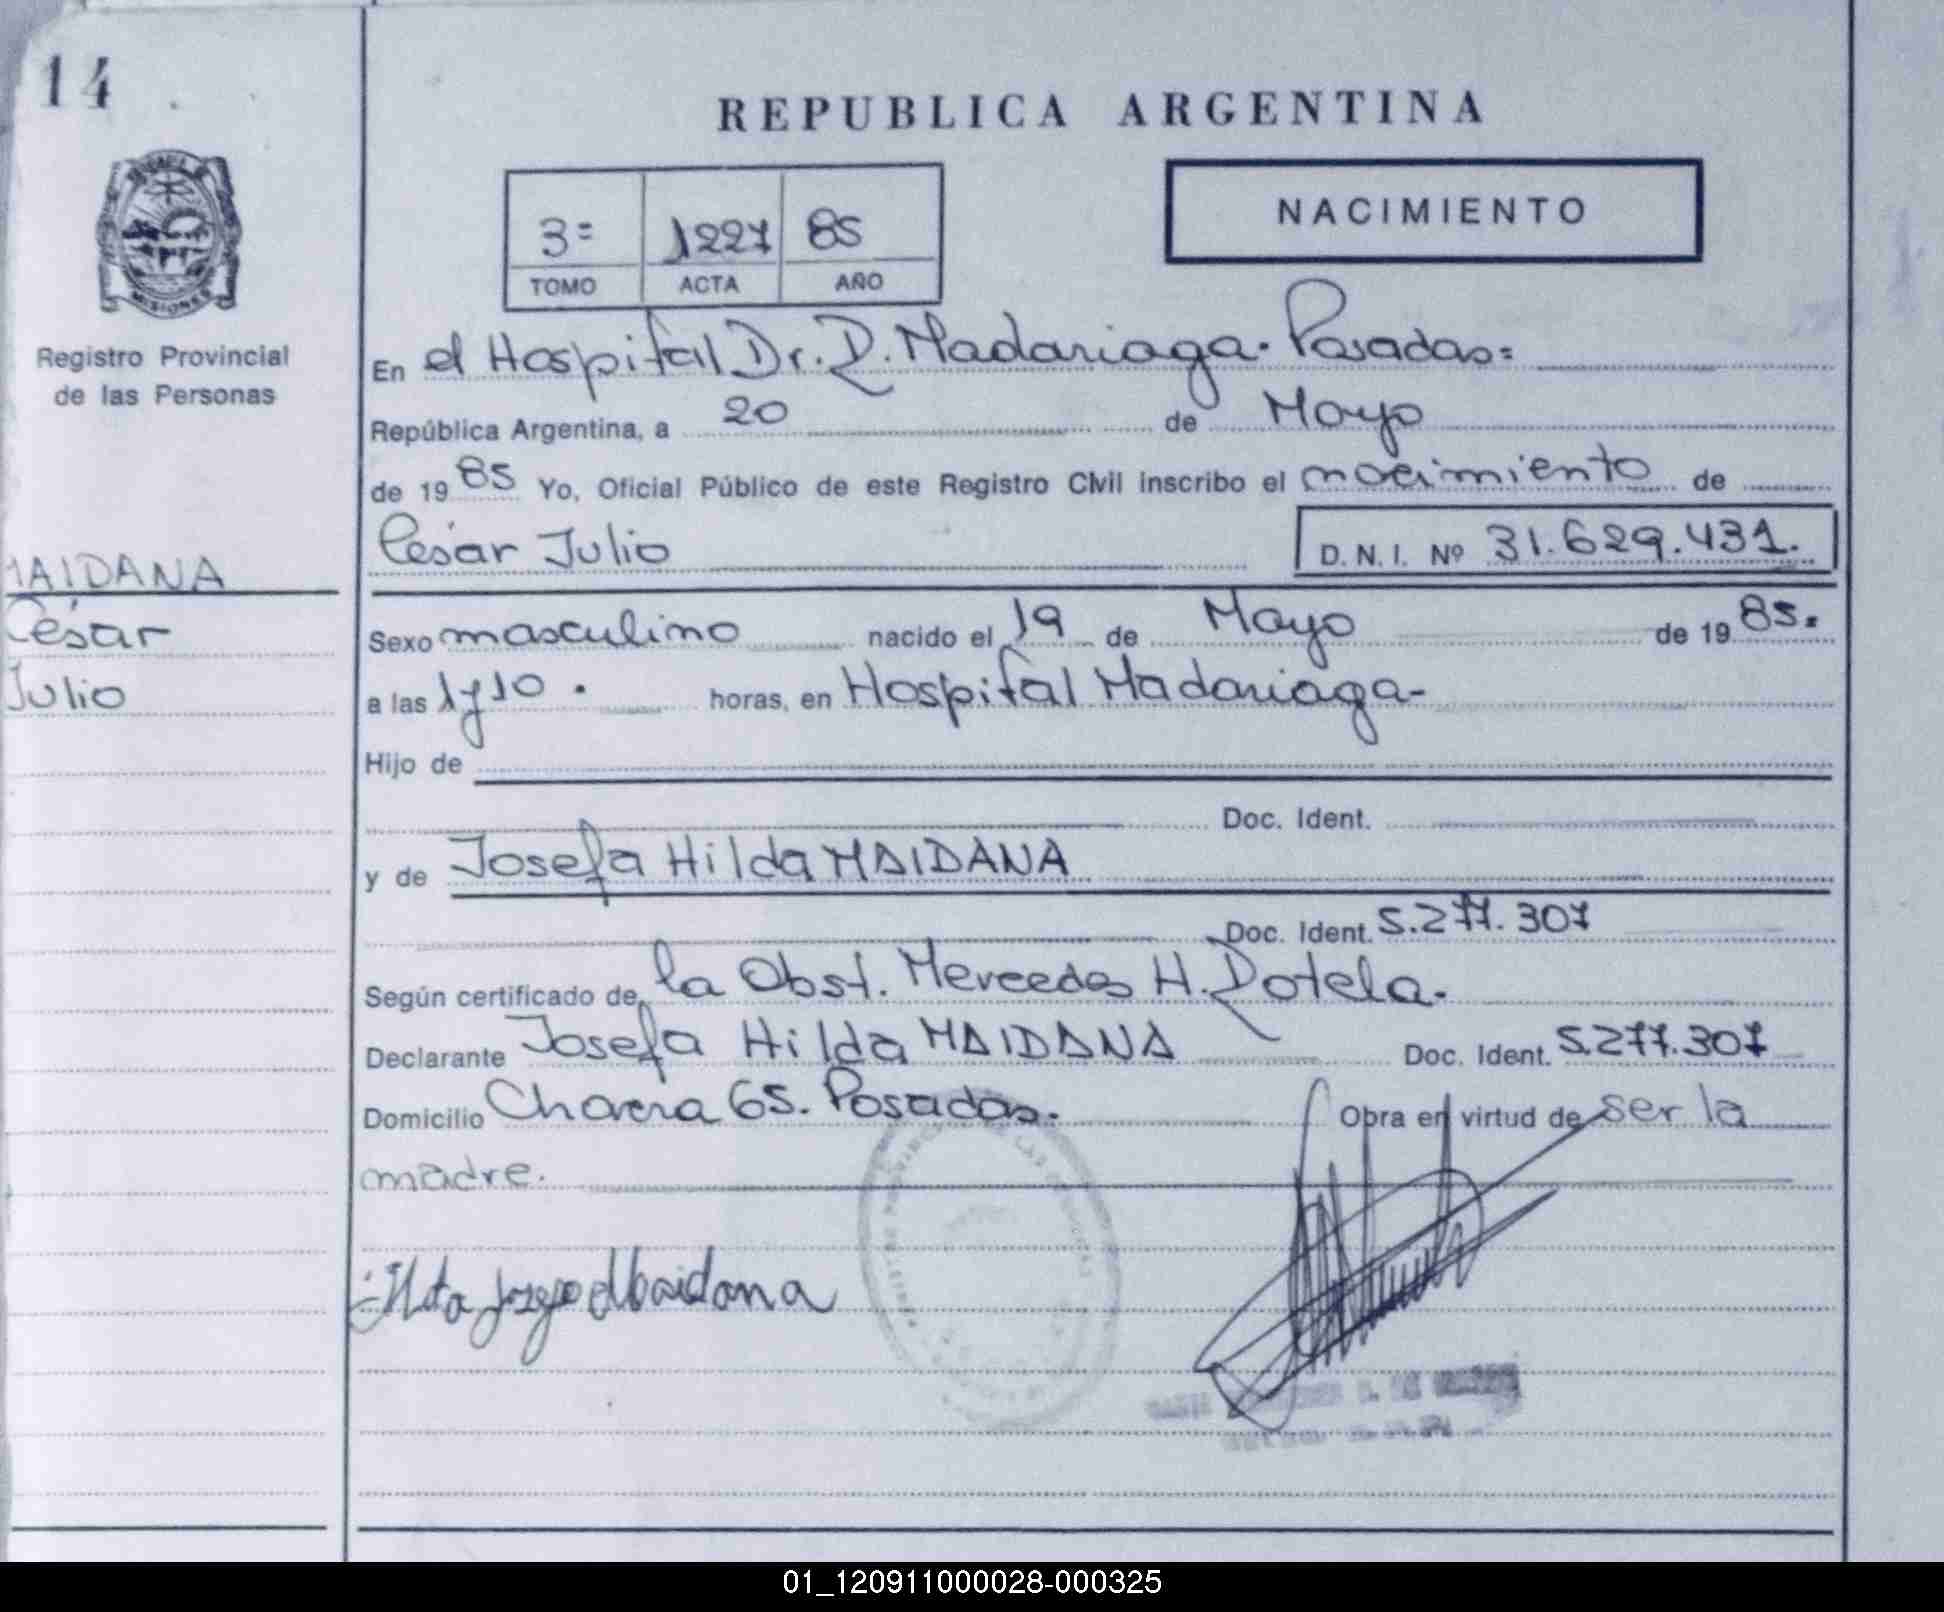 14
REPUBLICA ARGENTINA
NACIMIENTO
3=
1227
85
TOMO
ACTA
AÑO
MISIONES
Registro Provincial
de las Personas
En el Hospital Dr. R. Madariaga. Posadas=
República Argentina, a 20 de Mayo
de 1985 Yo, Oficial Público de este Registro Civil inscribo el nacimiento de
César Julio
D. N. I. Nº 31.629.431.
MAIDANA
César
Julio
Sexo masculino nacido el 19 de Mayo de 1985.
a las 1y10. horas, en Hospital Madariaga-
Hijo de
Doc. Ident.
y de Josefa Hilda MAIDANA
Doc. Ident. 5.277.307
Según certificado de la Obst. Mercedes H. Rotela.
Declarante Josefa Hilda MAIDANA Doc. Ident. 5.277.307
Domicilio 65. Posadas. Obra en virtud de ser la
madre.
Maidana
01_120911000028-000325